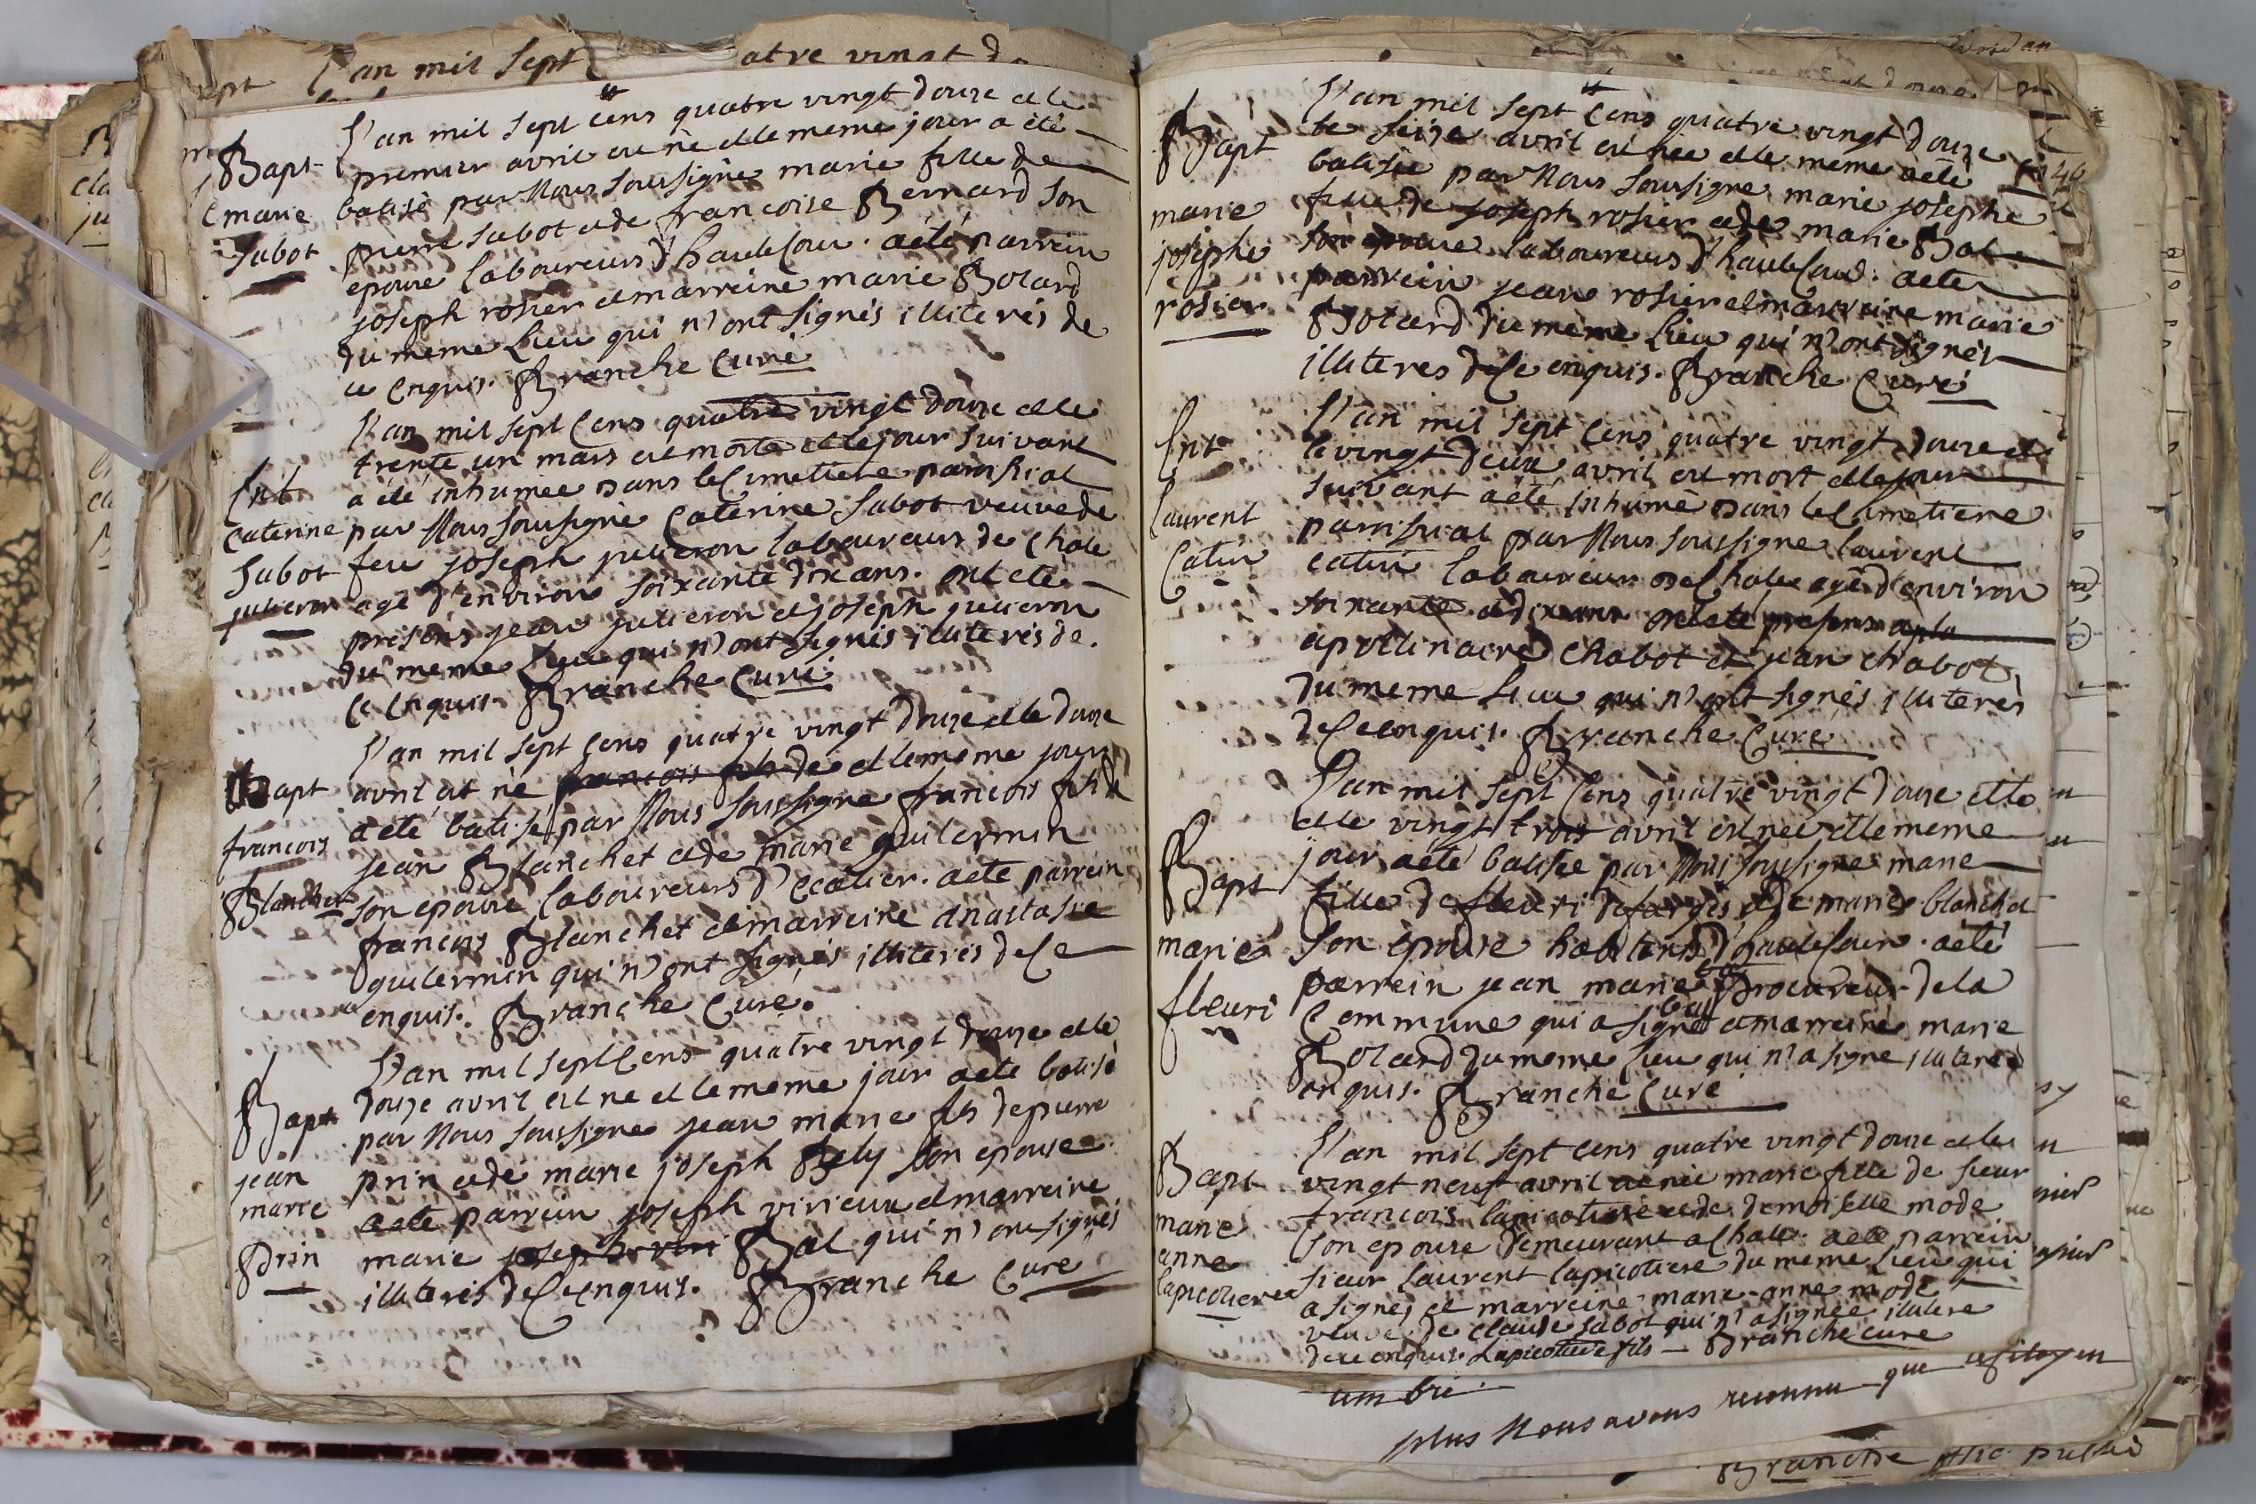 L'an mil sept cens quatre vingt douze et le
premier avril est né et le meme jour a été
Bapt batisé par Nous soussigné marie fille de
marie pierre sabot et de francoise Bernard son
sabot epouse laboureurs d'hautecour. a été parrein
joseph rosier et marreine marie Bolard
du meme lieu qui n'ont signés illiterés de
ce enquis. Branche Curé
L'an mil sept Cens quatre vingt douze et le
trente un mars est morte et le jour suivant
Ent a été inhumee dans le Cimetiere paroissial
Caterine par Nous soussigné Caterine Sabot veuve de
Sabot feu joseph julieron laboureurs de Chale
julieron agé d'environ soixante dix ans. ont été
presens jean julieron et joseph julieron
du meme lieu qui n'ont signés illiterés de
Ce enquis. Branche Curé
L'an mil sept Cens quatre vingt douze et le douze
Bapt avril est né francois fils de et le meme jour
francois a été batisé par Nous soussigné francois fils de
Blanchet jean Blanchet et de marie guilermin
son epouse laboureurs d' a été parrein
francois Blanchet et marreine anastasie
guilermin qui n'ont signés illiterés de Ce
enquis. Branche Curé.
L'an mil sept Cens quatre vingt douze et le
Bapt douze avril est né et le meme jour a été batisé
jean par Nous soussigné jean marie fils de pierre
marie prin et de marie joseph Bely son epouse
Prin a été parrein joseph virieux et marreine
marie joseph Bal qui n'ont signés
illiterés de Ce enquis. Branche Curé
L'an mil sept Cens quatre vingt douze
Bapt le seize avril est née et le meme a été
marie batisée par Nous soussigné marie josephe
josephe fille de joseph rosier et de marie Bal
rosier son epouse laboureurs d'hautecour. a été
parrein jean rosier et marreine marie
Bolard du meme lieu qui n'ont signés
illiterés de Ce enquis. Branche Curé
L'an mil sept Cens quatre vingt douze et
Ent le vingt deux avril est mort et le jour
Laurent suivant a été inhumé dans le Cimetiere
Catin paroissial par Nous soussigné laurent
catin laboureur de Chale agé d'environ
soixante et dix ans ont été presens
apollinaire Chabot et jean Chabot
du meme lieu qui n'ont signés illiterés
de Ce enquis. Branche Curé
L'an mil sept Cens quatre vingt douze et le
et le vingt trois avril est née et le meme
Bapt jour a été batisée par Nous soussigné marie
marie fille de fleuri et de marie blanchet
fleuri son epouse habitants d'hautecour. a été
parrein jean marie procureur de la
Commune qui a signé et marreine marie
Bolard du meme lieu qui n'a signé illiteré
enquis. Branche Curé
L'an mil sept cens quatre vingt douze et le
Bapt vingt neuf avril est née marie fille de sieur
marie francois lapicotiere et de demoiselle mode
anne son epouse demeurant a Chale. a été parrein
lapicotiere sieur laurent lapicotiere du meme lieu qui
a signé et marreine marie anne mode
veuve de claude sabot qui n'a signée illitere
de ce enquis. Lapicotiere fils — Branche cure
plus Nous avons reconnu que
Branche